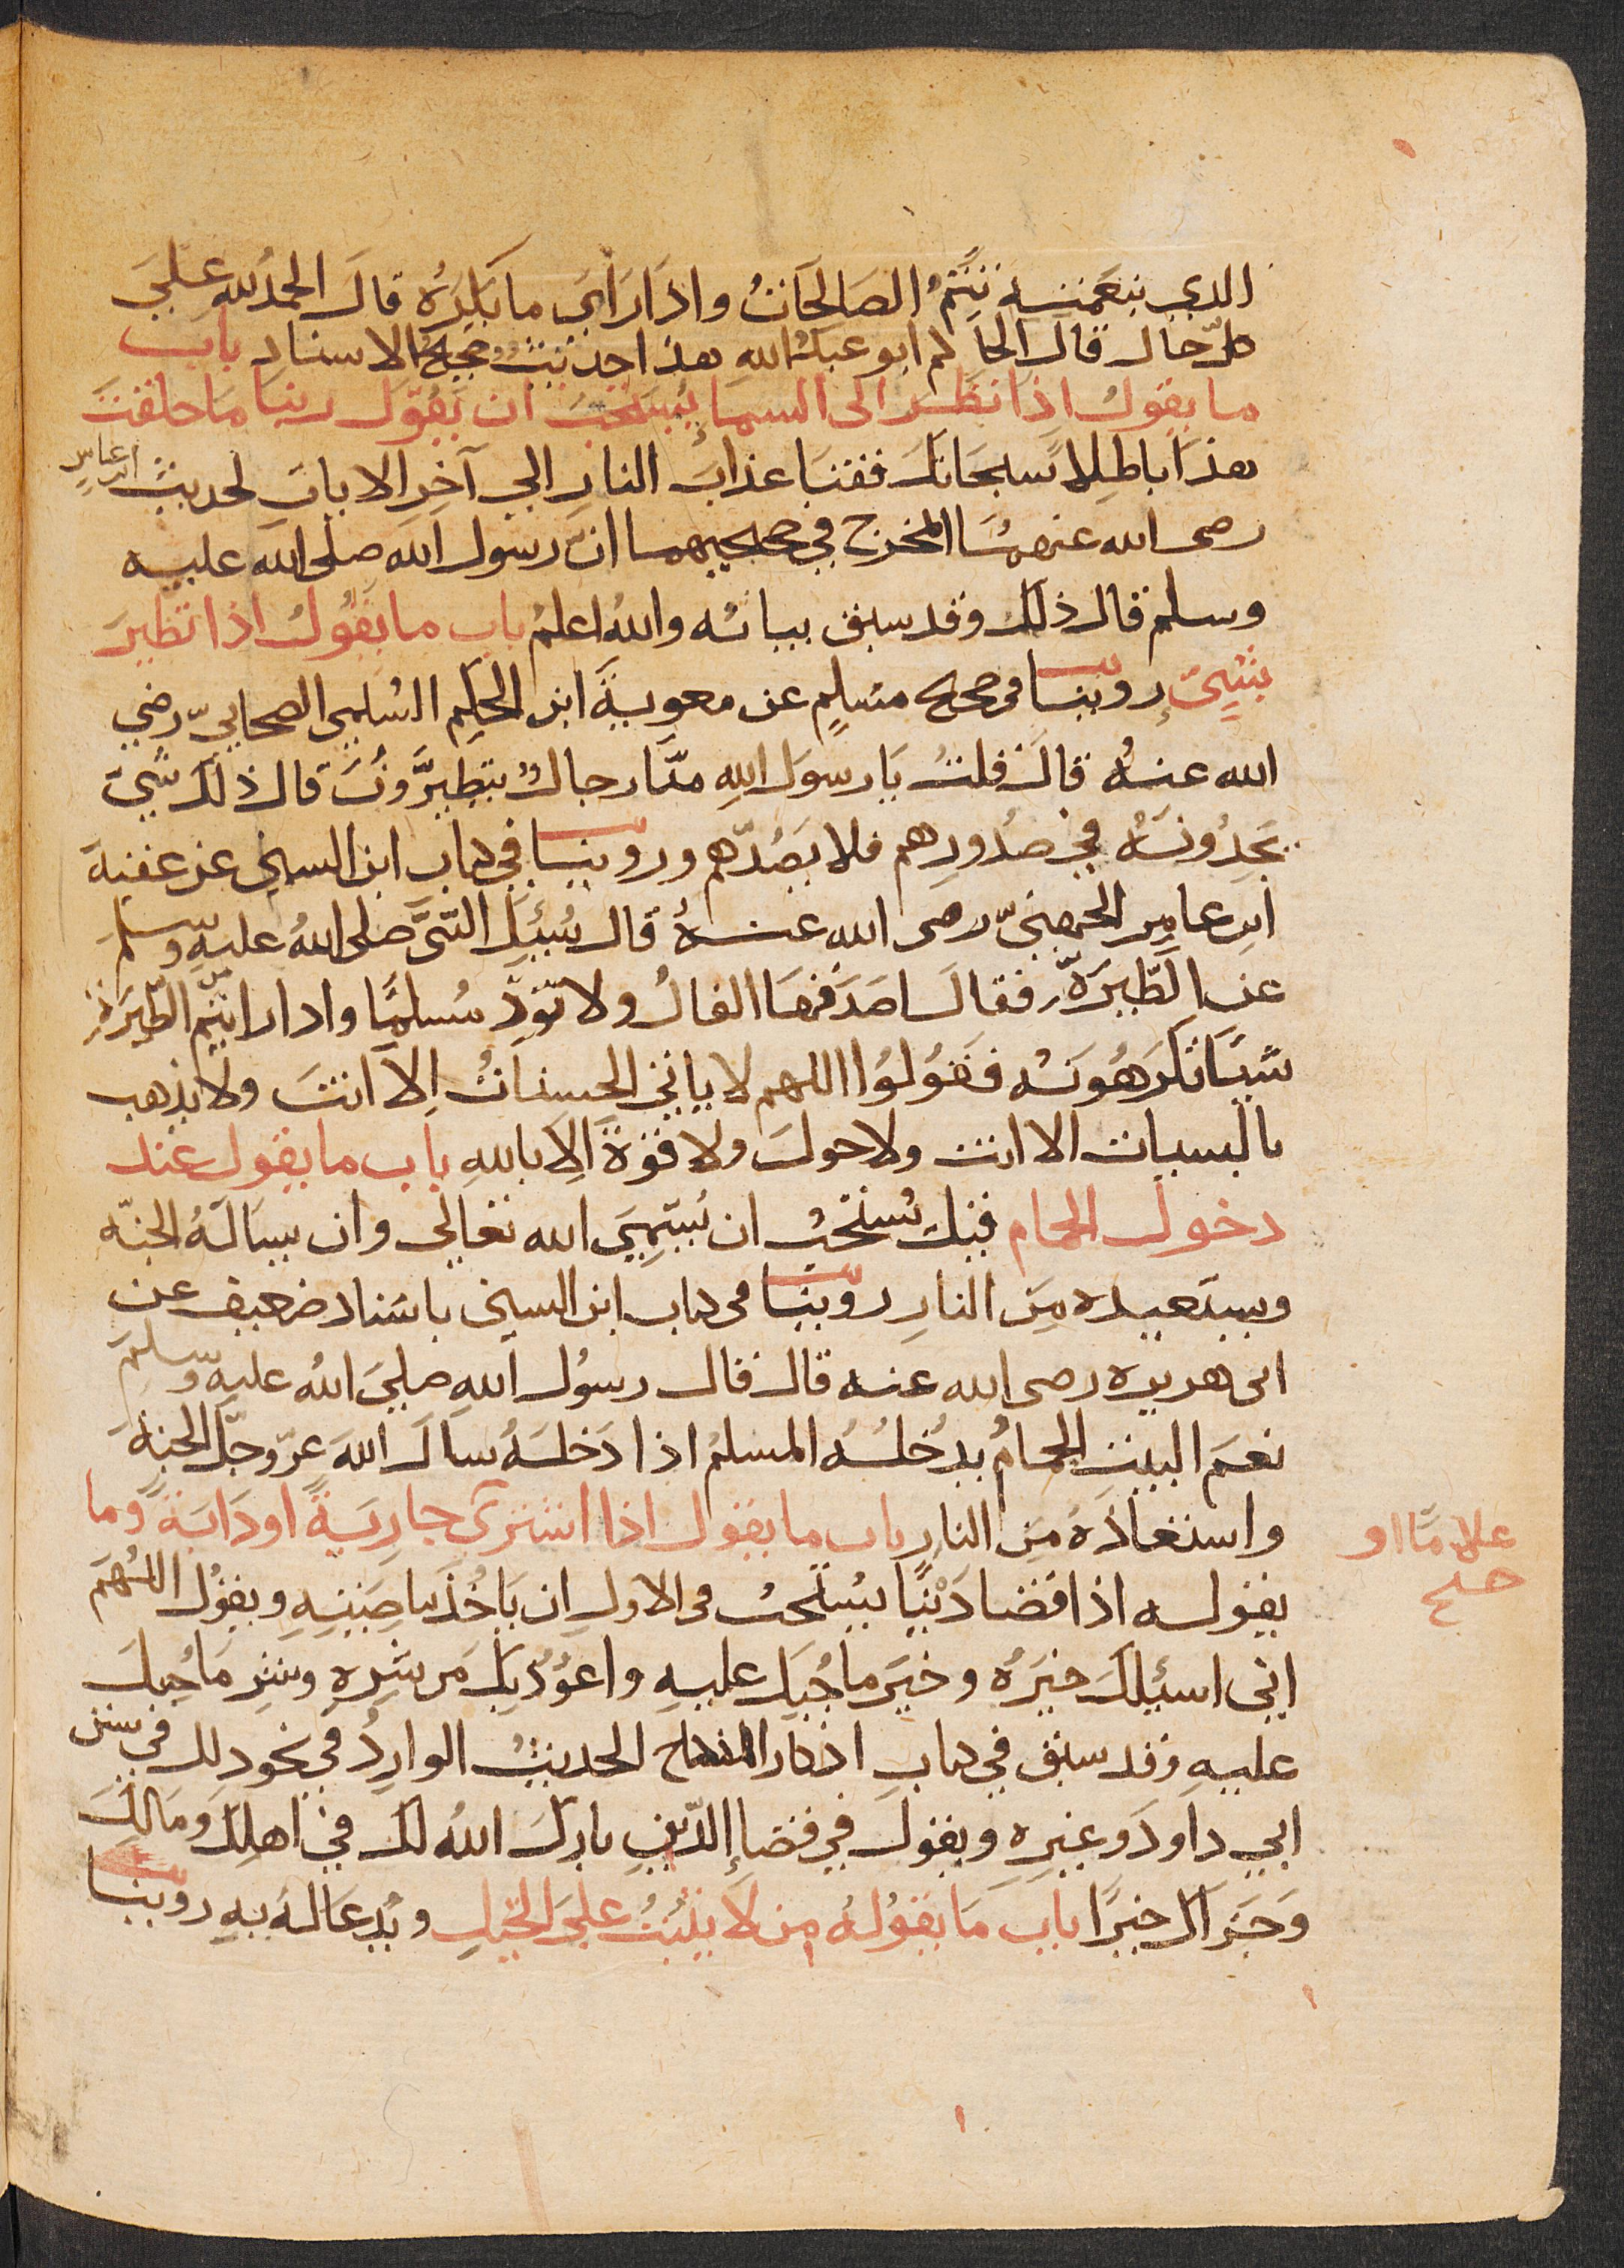 الذي بنعمته تتم الصالحات واذا رأى ما يكره قال الحمد لله على
كل حال قال الحاكم ابو عبد الله هذا حديث صحيح الاسناد باب
ما يقول اذا نظر الى السما يستحب ان يقول ربنا ما خلقت
هذا باطلا سبحانك فقنا عذاب النار الى آخر الايات لحديث ابن عباس
رضى الله عنهما المخرج في صحيحيهما ان رسول الله صلى الله عليه
وسلم قال ذلك وقد سبق بيانه والله اعلم باب ما يقول اذا تطير
بشيئ روينا فى صحيح مسلم عن معوية ابن الحكم السلمى الصحابي رضي
الله عنه قال قلت يا رسول الله منا رجال يتطيرون قال ذلك شئ
يجدونه في صدورهم فلا يصدهم وروينا في كتاب ابن السني عن عقبة
ابن عامر الجهني رضى الله عنه قال سئل النبي صلى الله عليه وسلم
عن الطيرة فقال اصدقها الفال ولا ترد مسلما واذا رايتم من الطيرة
شيا تكرهونه فقولوا اللهم لا ياتي الحسنات الا انت ولا يذهب
بالسيات الا انت ولا حول ولا قوة الا بالله باب ما يقول عند
دخول الحمام قيل يستحب ان يسمي الله تعالى وان يساله الجنه
ويستعيده من النار روينا فى كتاب ابن السني باسناد ضعيف عن
ابى هريره رضى الله عنه قال قال رسول الله صلى الله عليه وسلم
نعم البيت الحمام يدخله المسلم اذا دخله سال الله عز وجل الجنة
واستعاذه من النار باب ما يقول اذا اشترى جارية او دابة وما
علاما او
صح
يقوله اذا قضا دينا يستحب فى الاول ان ياخذ بناصيته ويقول اللهم
اني اسئلك خيره وخير ما جبل عليه واعوذ بك من شره وشر ما جبل
عليه وقد سبق في كتاب اذكار النكاح الحديث الوارد في نحو ذلك في سنن
ابي داود وغيره ويقول في قضاء الدين بارك الله لك في اهلك ومالك
وجزاك خيرا باب ما يقوله من لا يثبت على الخيل ويدعا له به روينا